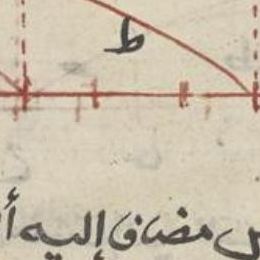 ط
مضاف إليه